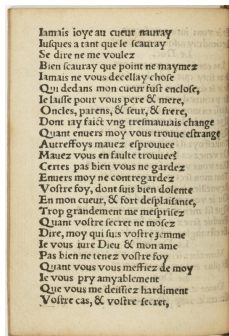 Iamais ioye au cueur nauray
Iusques a tant que le scauray
Se dire ne me voulez
Bien scauray que point ne maymez
Iamais ne vous decellay chose
Qui dedans mon cueur fust enclose,
Ie laisse pour vous pere & mere,
Oncles, parens, & seur, & frere,
Dont iay faict vng tresmauuais change
Quant enuers moy vous trouue estrange
Autreffoys mauez esprouuee
Mauez vous en faulte trouuee?
Certes pas bien vous ne gardez
Enuers moy ne contregardez
Vostre foy, dont suis bien dolente
En mon cueur, & fort desplaisante,
Trop grandement me mesprisez
Quant vostre secret ne mosez
Dire, moy qui suis vostre femme
Ie vous iure Dieu & mon ame
Pas bien ne tenez vostre foy
Quant vous vous meffiez de moy
Ie vous pry amyablement
Que vous me dissiez hardiment
Vostre cas, & vostre secret,